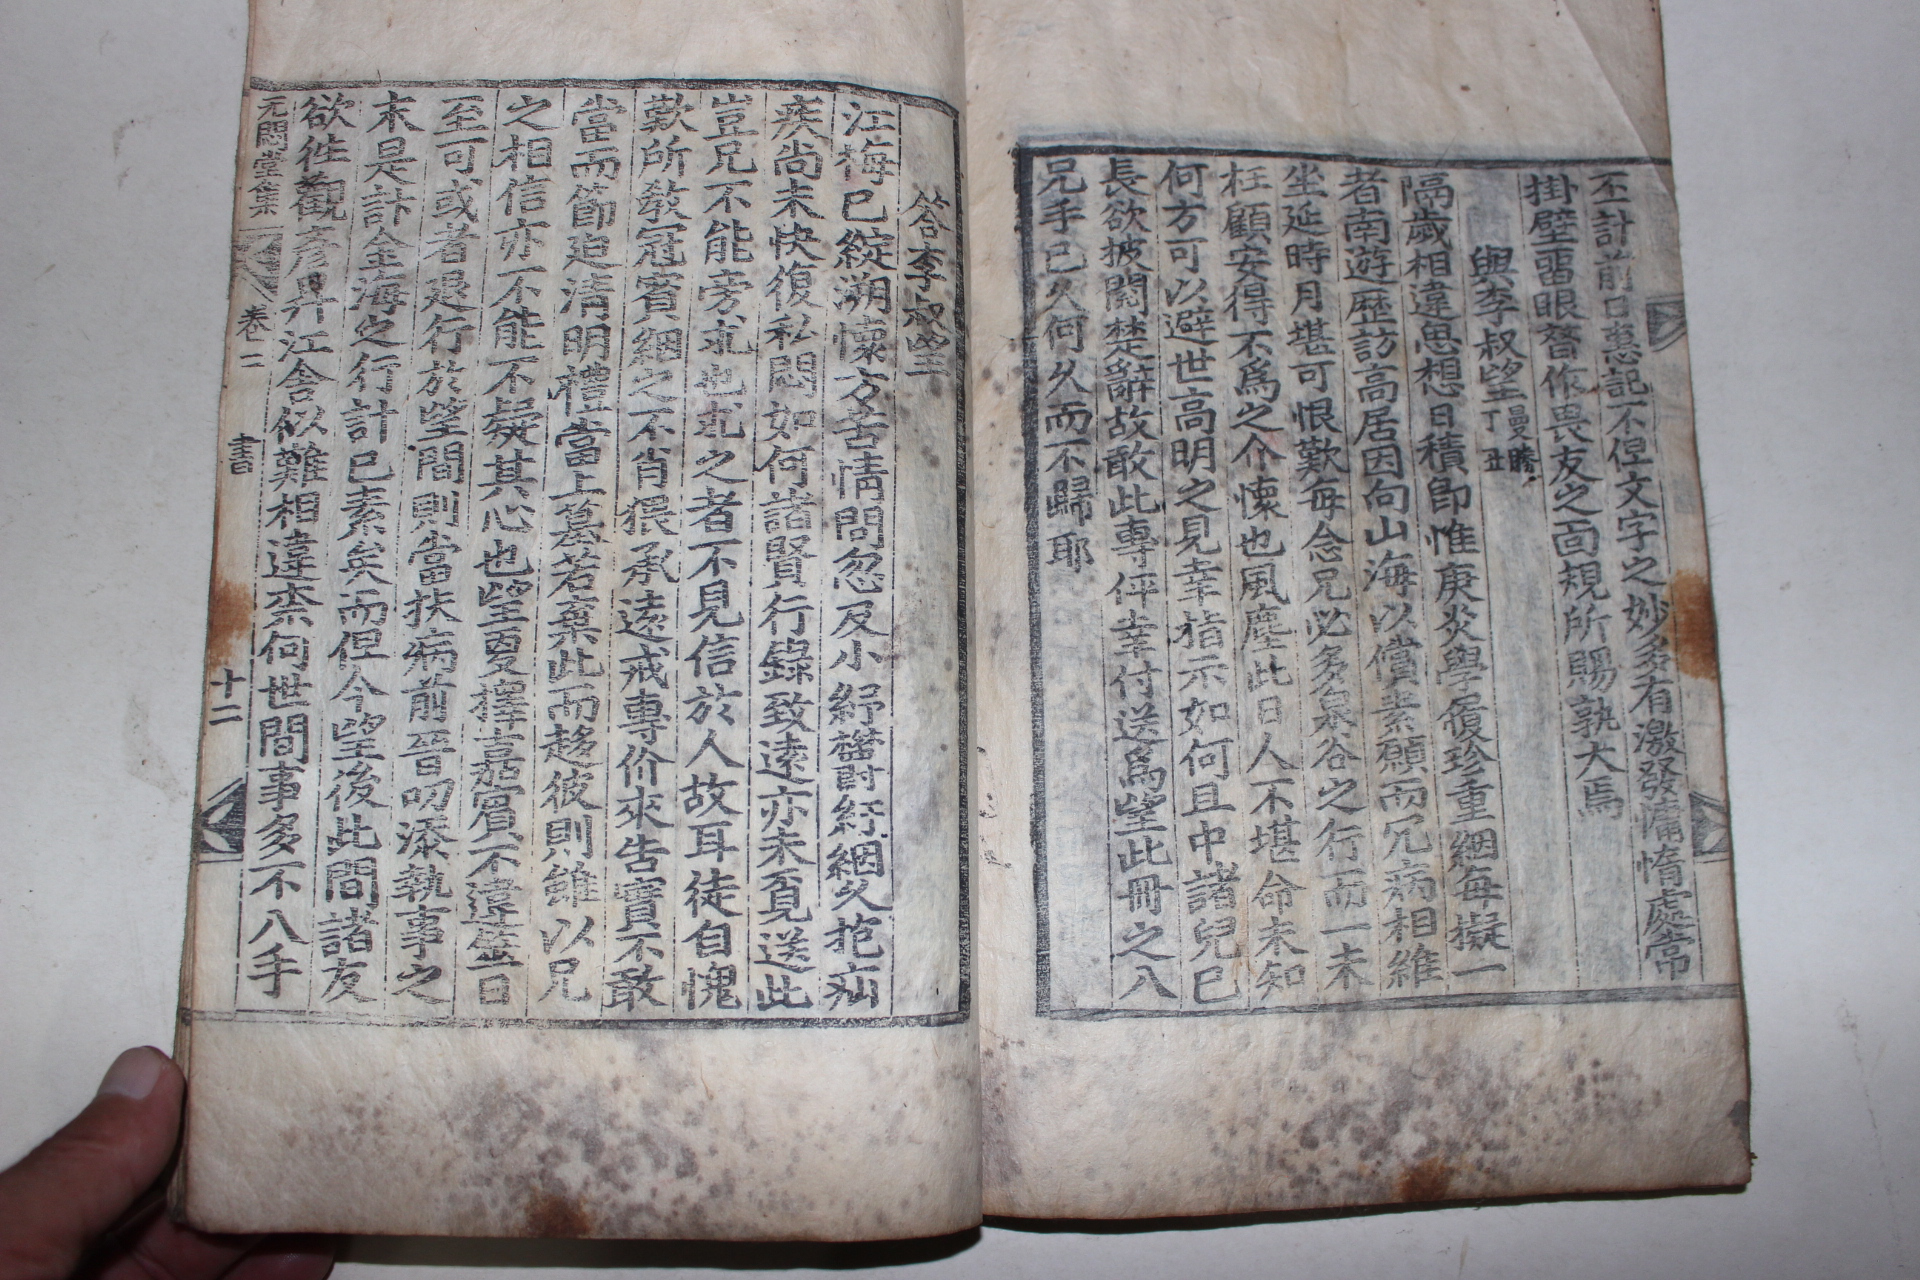 丕計前日惠記不但文字之妙多有激發慵惰處常
掛壁留眼替作畏友之面規所賜孰大焉
與李叔望曼勝丁丑
隔歲相違思想日積即惟庚炎學履珍重絪每擬一
者南遊歷訪高居因向山海以償素願而冗病相維
坐延時月堪可恨歎每念兄必多泉谷之行而一未
枉顧安得不爲之介懷也風塵此日人不堪命未知
何方可以避世高明之見幸指示如何且中諸兒已
長欲披閱楚辭故敢此專伻幸付送爲望此冊之入
兄手已久何久而不歸耶
答李叔望
江梅已綻溯懷方苦情問忽及小紓紆絪久抱疝
疾尙未快復私悶如何諸賢行錄致遠亦未覓送此
豈兄不能旁求也求之者不見信於人故耳徒自愧
歎所敎冠賓絪之不肖猥承遠戒專价來告實不敢
當而節迫淸明禮當上墓若棄此而趍彼則雖以兄
之相信亦不能不疑其心也望更擇嘉賓不違筮日
至可或者退行於望間則當扶病前晉叨添執事之
末是計金海之行計已素矣而但今望後此間諸友
欲徃觀彦昇江舍似難相違柰何世間事多不入手
无悶堂集
卷二
書
十二